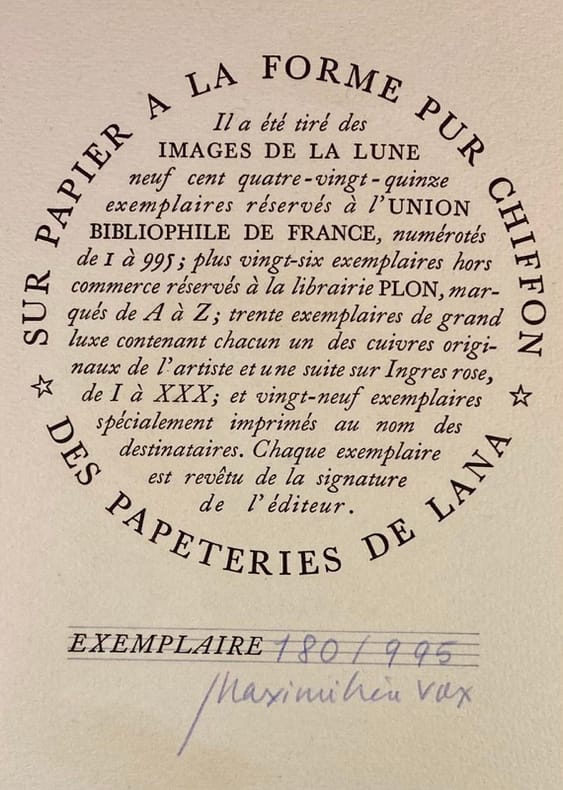 SUR PAPIER A LA FORME PUR CHIFFON
Il a été tiré des
IMAGES DE LA LUNE
neuf cent quatre-vingt-quinze
exemplaires réservés à l'UNION
BIBLIOPHILE DE FRANCE, numérotés
de 1 à 995; plus vingt-six exemplaires hors
commerce réservés à la librairie PLON, mar-
qués de A à Z; trente exemplaires de grand
luxe contenant chacun un des cuivres origi-
naux de l'artiste et une suite sur Ingres rose,
de I à XXX; et vingt-neuf exemplaires
spécialement imprimés au nom des
destinataires. Chaque exemplaire
est revêtu de la signature
de l'éditeur.
DES PAPETERIES DE LANA
EXEMPLAIRE 180/995
Maximilien Vox